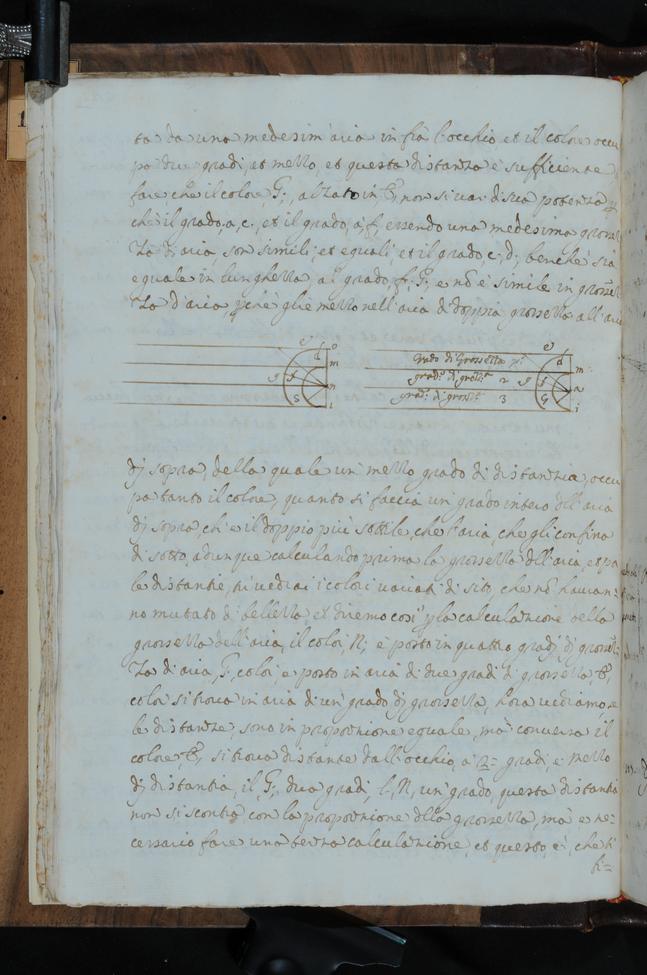 ta da una medesim'aria in frà l'occhio, et il colore occu
pa due gradi, et mezzo, et questa distanza è sufficiente,
fare che il colore G, alzato in non si uari di sua potenza
che il grado, a, c, et il grado, a, f, essendo una medesima grossez
za di aria, son simili, et equali, et il grado, c, d, benche sia
equale in lunghezza al grado, f, G, e nõ è simile in grossez
za d'aria, gli è mezzo nell'aria di doppia grossezza all'aria
o
d
m
g
f
n
s
i
grado di Grossezza
d
m
grad. di gross.ª 2
g
f
n
grad. di gross.ª 3
i
dj sopra, della quale un mezzo grado di distanzia, occu
pa tanto il colore, quanto si faccia un grado intero dell'aria
dj sopra, ch'è il doppio più sottile, che l'aria, che gli confina
di sotto, adunque calculando prima la grossezza dell'aria, et poi
le distantie, tu vedrai i colori uariati di sito, che nõ hauran=
no mutato di bellezza, et diremo così la calculazione della
grossezza dell'aria, il color, N, è posto in quattro gradj dj grossez
za di aria, G, color, è posto in aria di due gradi di grossezza,
color si troua in aria di un' grado dj grossezza, hora uediamo, se
le distanze, sono in proporzione equale, mà conuersa il
colore, si troua distante dall'occhio, a 2= gradi, e mezzo
dj distantia, il, G, dua gradi, l, N, un' grado, questa distantia
non si scontra con la proporzione della grossezza, mà e ne=
cessario fare una terza calculazione, et questo è, che ti
ti=